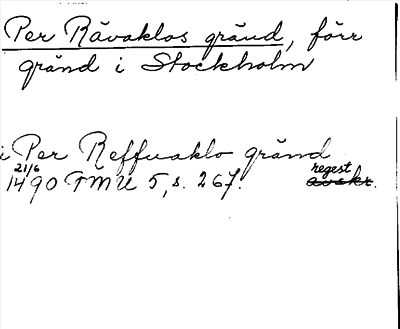 Per Rävaklos gränd, förr
gränd i Stockholm
i Per Reffvaklo gränd
21/6 regest
1490 FMU 5, s. 267. avskr.